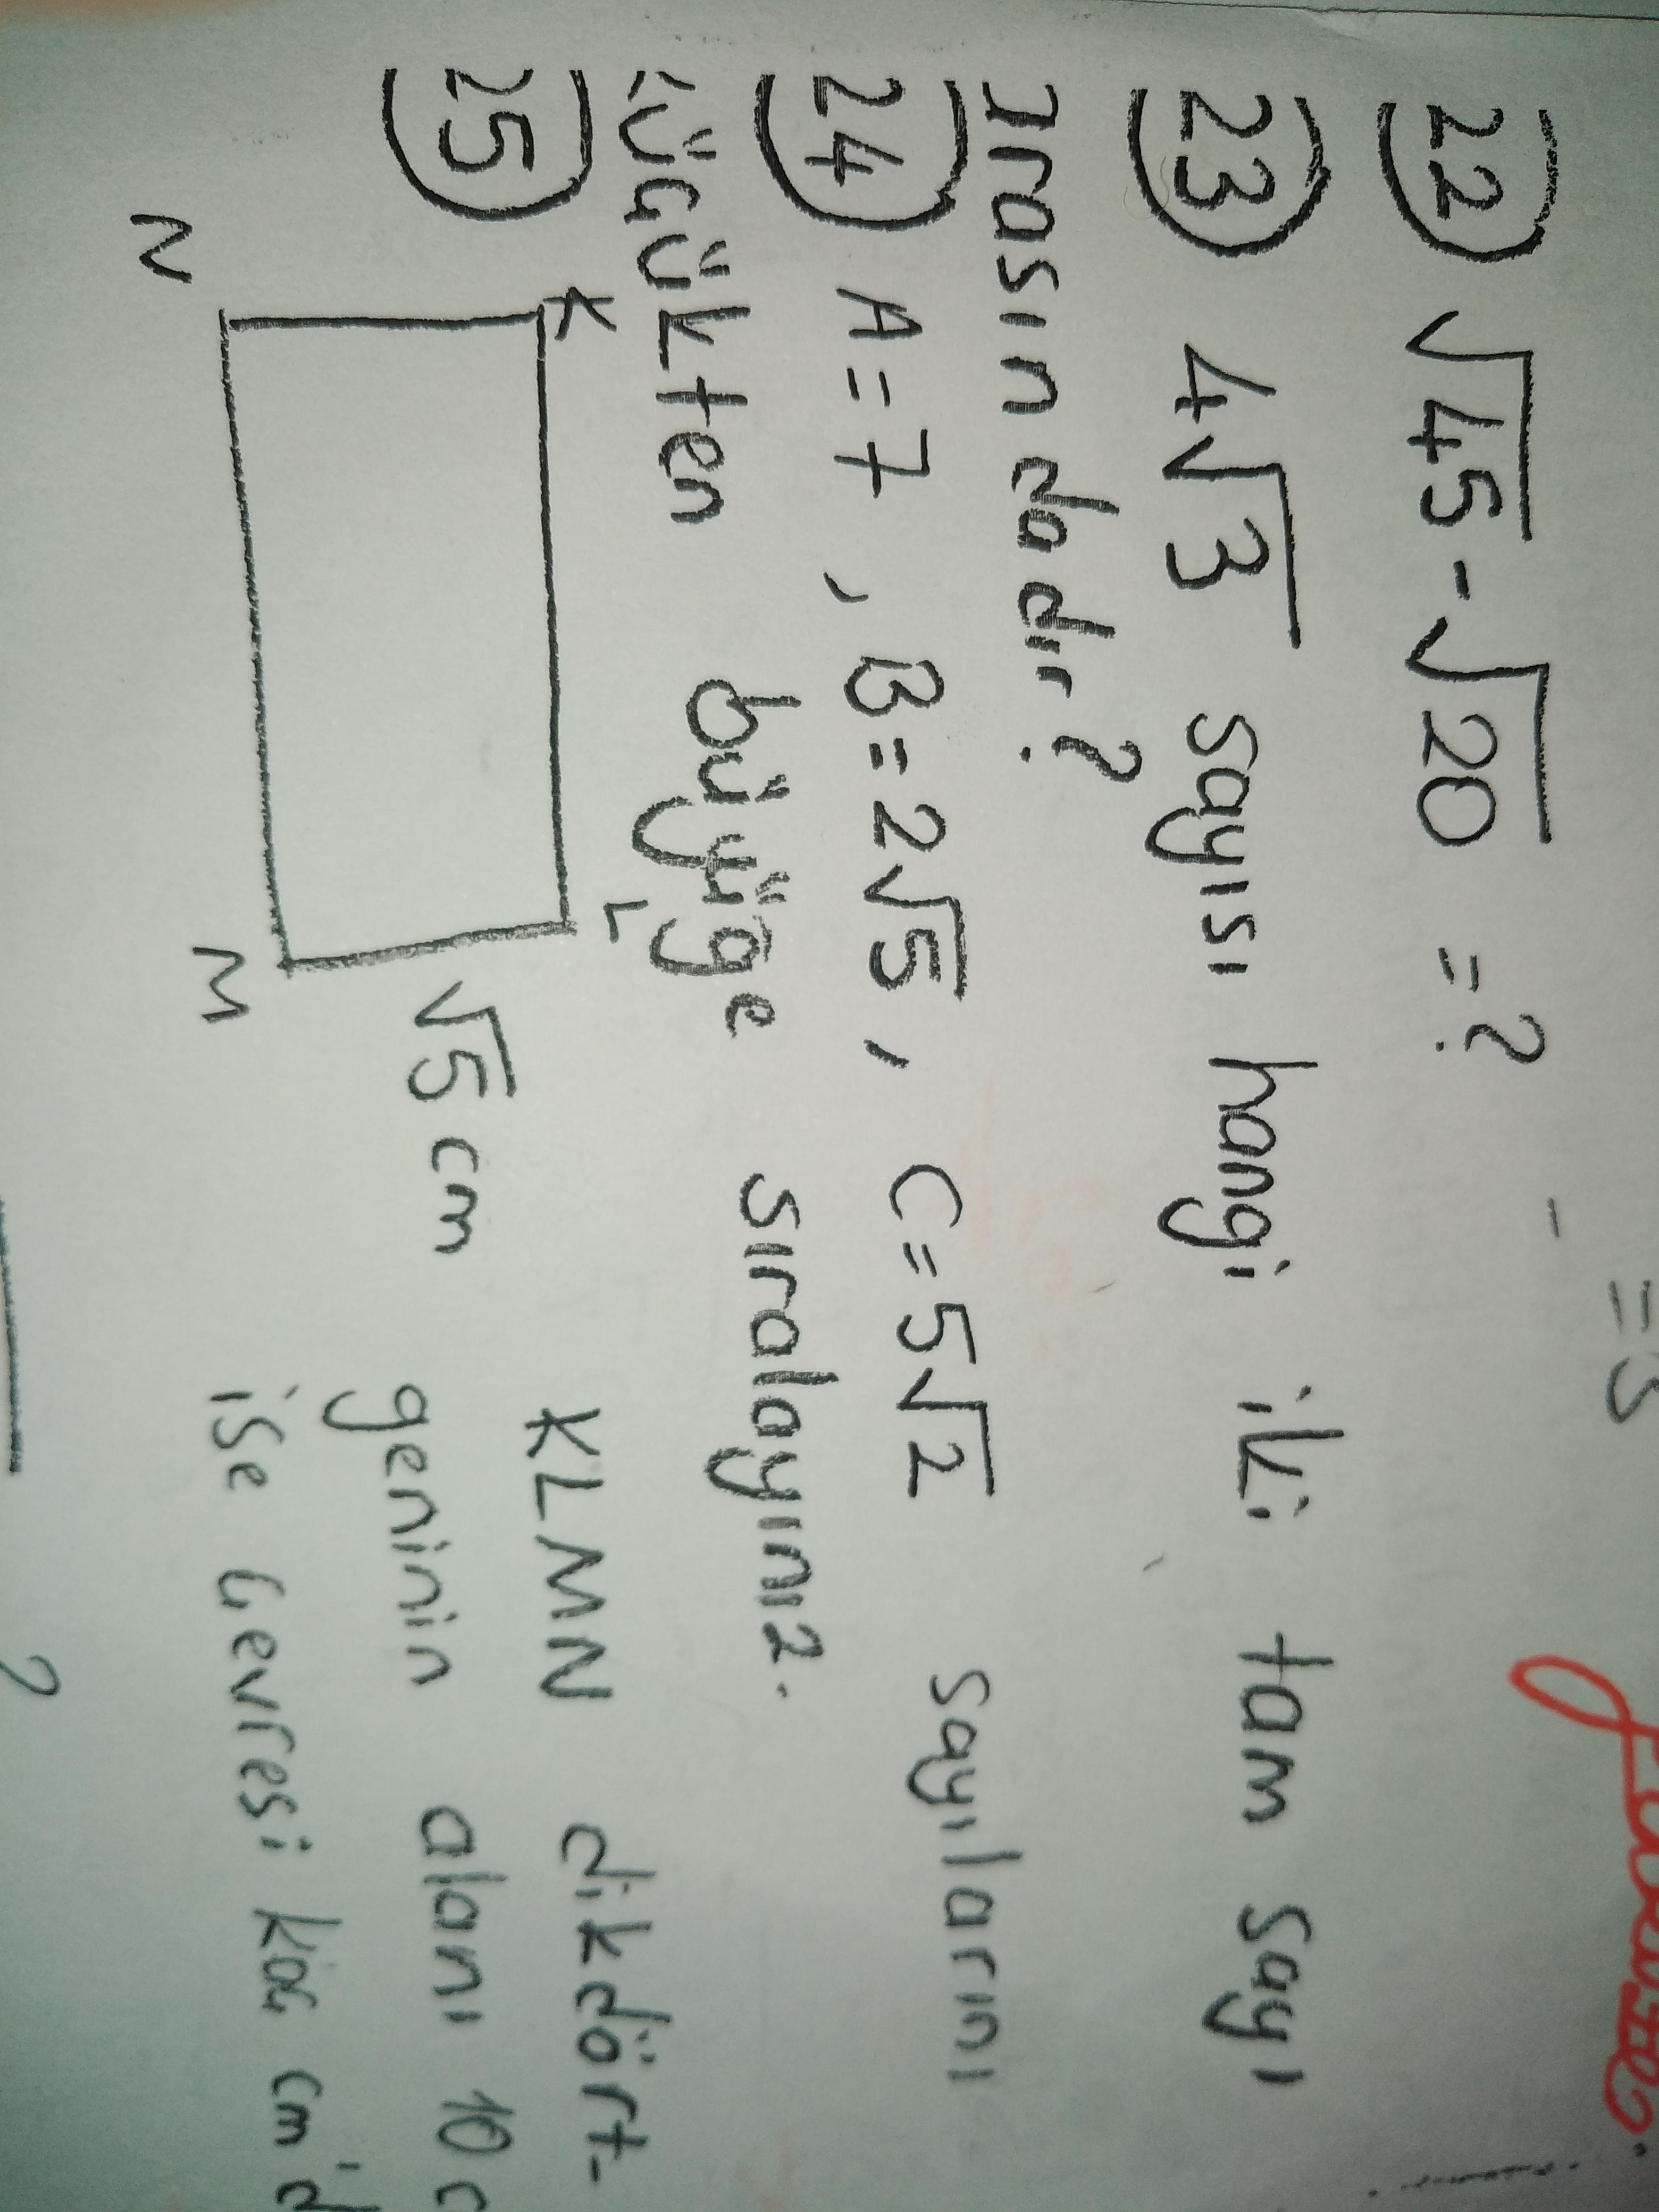 =5
22 √45 - √20 = ?
23 4√3 sayısı hangi iki tam sayı
arasındadır?
24 A=7, B=2√5, C=5√2 sayılarını
küçükten büyüğe sıralayınız.
25
K L
N M
√5 cm
KLMN dikdört-
genin alanı 10 c
ise çevresi kaç cm'd
?